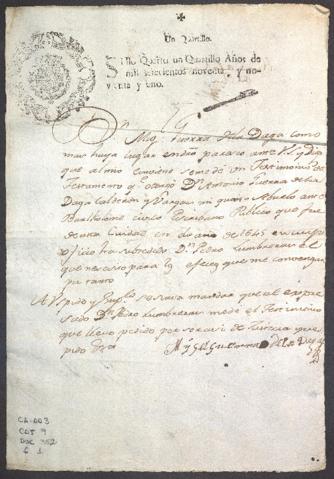 Un Quartillo.
Sello Quarto un Quartillo Años de
mil setecientos noventa, y no-
venta y uno.
Dn. Mig. Guerra de la Daga como
mas haya lugar en dro paresco ante V. y Digo
que al mio combiene se me dé un Testimonio del
Testamento q otorgó Dn. Antonio Guerra de la
Daga Calderon y Vargas mi quarto Abuelo ante
Escribano Publico que fue
de esta Ciudad en el año de 1645 en cuyo
oficio ha subcedido Dn. Pedro Lumbreras el
que necesito para los efectos que me convengan
por tanto
A V. pido y Suplo se sirva mandar que el expre-
sado Dn. Pedro Lumbreras me de el Testimonio
que llevo pedido por ser asi de Justicia que
pido
Mig. Guerra de la Daga
CA-003
CAT 9
DOC 352
F 1